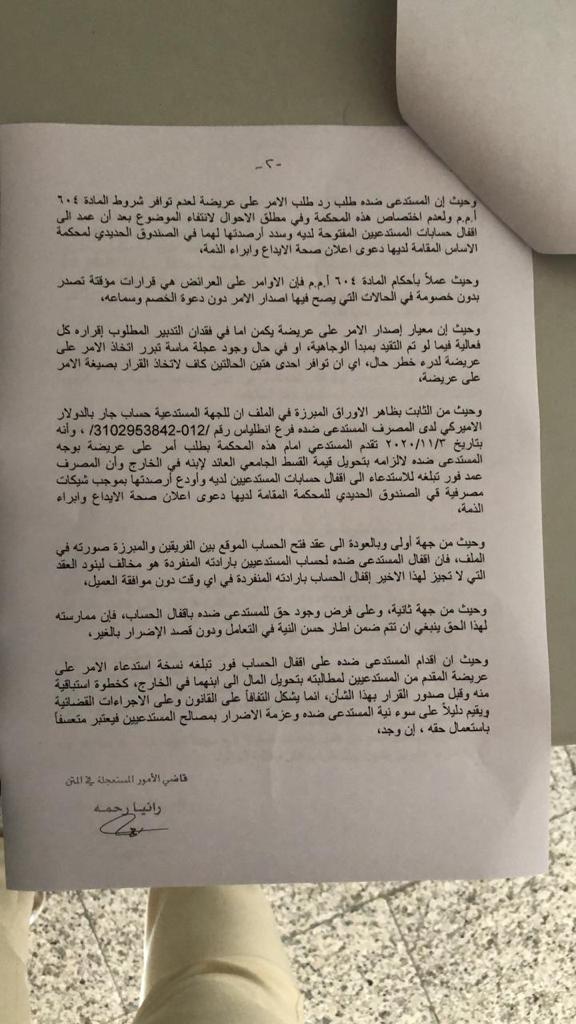 -٢-
وحيث إن المستدعى ضده طلب رد طلب الامر على عريضة لعدم توافر شروط المادة ٦٠٤
أ.م.م ولعدم اختصاص هذه المحكمة وفي مطلق الاحوال لانتفاء الموضوع بعد أن عمد الى
اقفال حسابات المستدعيين المفتوحة لديه وسدد أرصدتها لهما في الصندوق الحديدي لمحكمة
الاساس المقامة لديها دعوى اعلان صحة الايداع وابراء الذمة،
وحيث عملاً بأحكام المادة ٦٠٤ أ.م.م فإن الاوامر على العرائض هي قرارات مؤقتة تصدر
بدون خصومة في الحالات التي يصح فيها اصدار الامر دون دعوة الخصم وسماعه،
وحيث إن معيار إصدار الامر على عريضة يكمن اما في فقدان التدبير المطلوب إقراره كل
فعالية فيما لو تم التقيد بمبدأ الوجاهية، او في حال وجود عجلة ماسة تبرر اتخاذ الامر على
عريضة لدرء خطر حال، اي ان توافر احدى هتين الحالتين كاف لاتخاذ القرار بصيغة الامر
على عريضة،
وحيث من الثابت بظاهر الاوراق المبرزة في الملف ان للجهة المستدعية حساب جار بالدولار
الاميركي لدى المصرف المستدعى ضده فرع انطلياس رقم /012-3102953842/ ، وأنه
بتاريخ ٢٠٢٠/١١/٣ تقدم المستدعي امام هذه المحكمة بطلب أمر على عريضة بوجه
المستدعى ضده لالزامه بتحويل قيمة القسط الجامعي العائد لإبنه في الخارج وأن المصرف
عمد فور تبلغه للاستدعاء الى اقفال حسابات المستدعيين لديه وأودع أرصدتها بموجب شيكات
مصرفية في الصندوق الحديدي للمحكمة المقامة لديها دعوى اعلان صحة الايداع وابراء
الذمة،
وحيث من جهة أولى وبالعودة الى عقد فتح الحساب الموقع بين الفريقين والمبرزة صورته في
الملف، فان اقفال المستدعى ضده لحساب المستدعيين بارادته المنفردة هو مخالف لبنود العقد
التي لا تجيز لهذا الاخير إقفال الحساب بارادته المنفردة في اي وقت دون موافقة العميل،
وحيث من جهة ثانية، وعلى فرض وجود حق للمستدعى ضده باقفال الحساب، فإن ممارسته
لهذا الحق ينبغي ان تتم ضمن اطار حسن النية في التعامل ودون قصد الإضرار بالغير،
وحيث ان اقدام المستدعى ضده على اقفال الحساب فور تبلغه نسخة استدعاء الامر على
عريضة المقدم من المستدعيين لمطالبته بتحويل المال الى ابنهما في الخارج، كخطوة استباقية
منه وقبل صدور القرار بهذا الشأن، انما يشكل التفافاً على القانون وعلى الاجراءات القضائية
ويقيم دليلاً على سوء نية المستدعى ضده وعزمة الاضرار بمصالح المستدعيين فيعتبر متعسفاً
باستعمال حقه ، إن وجد،
قاضي الأمور المستعجلة في المتن
رانيا رحمه